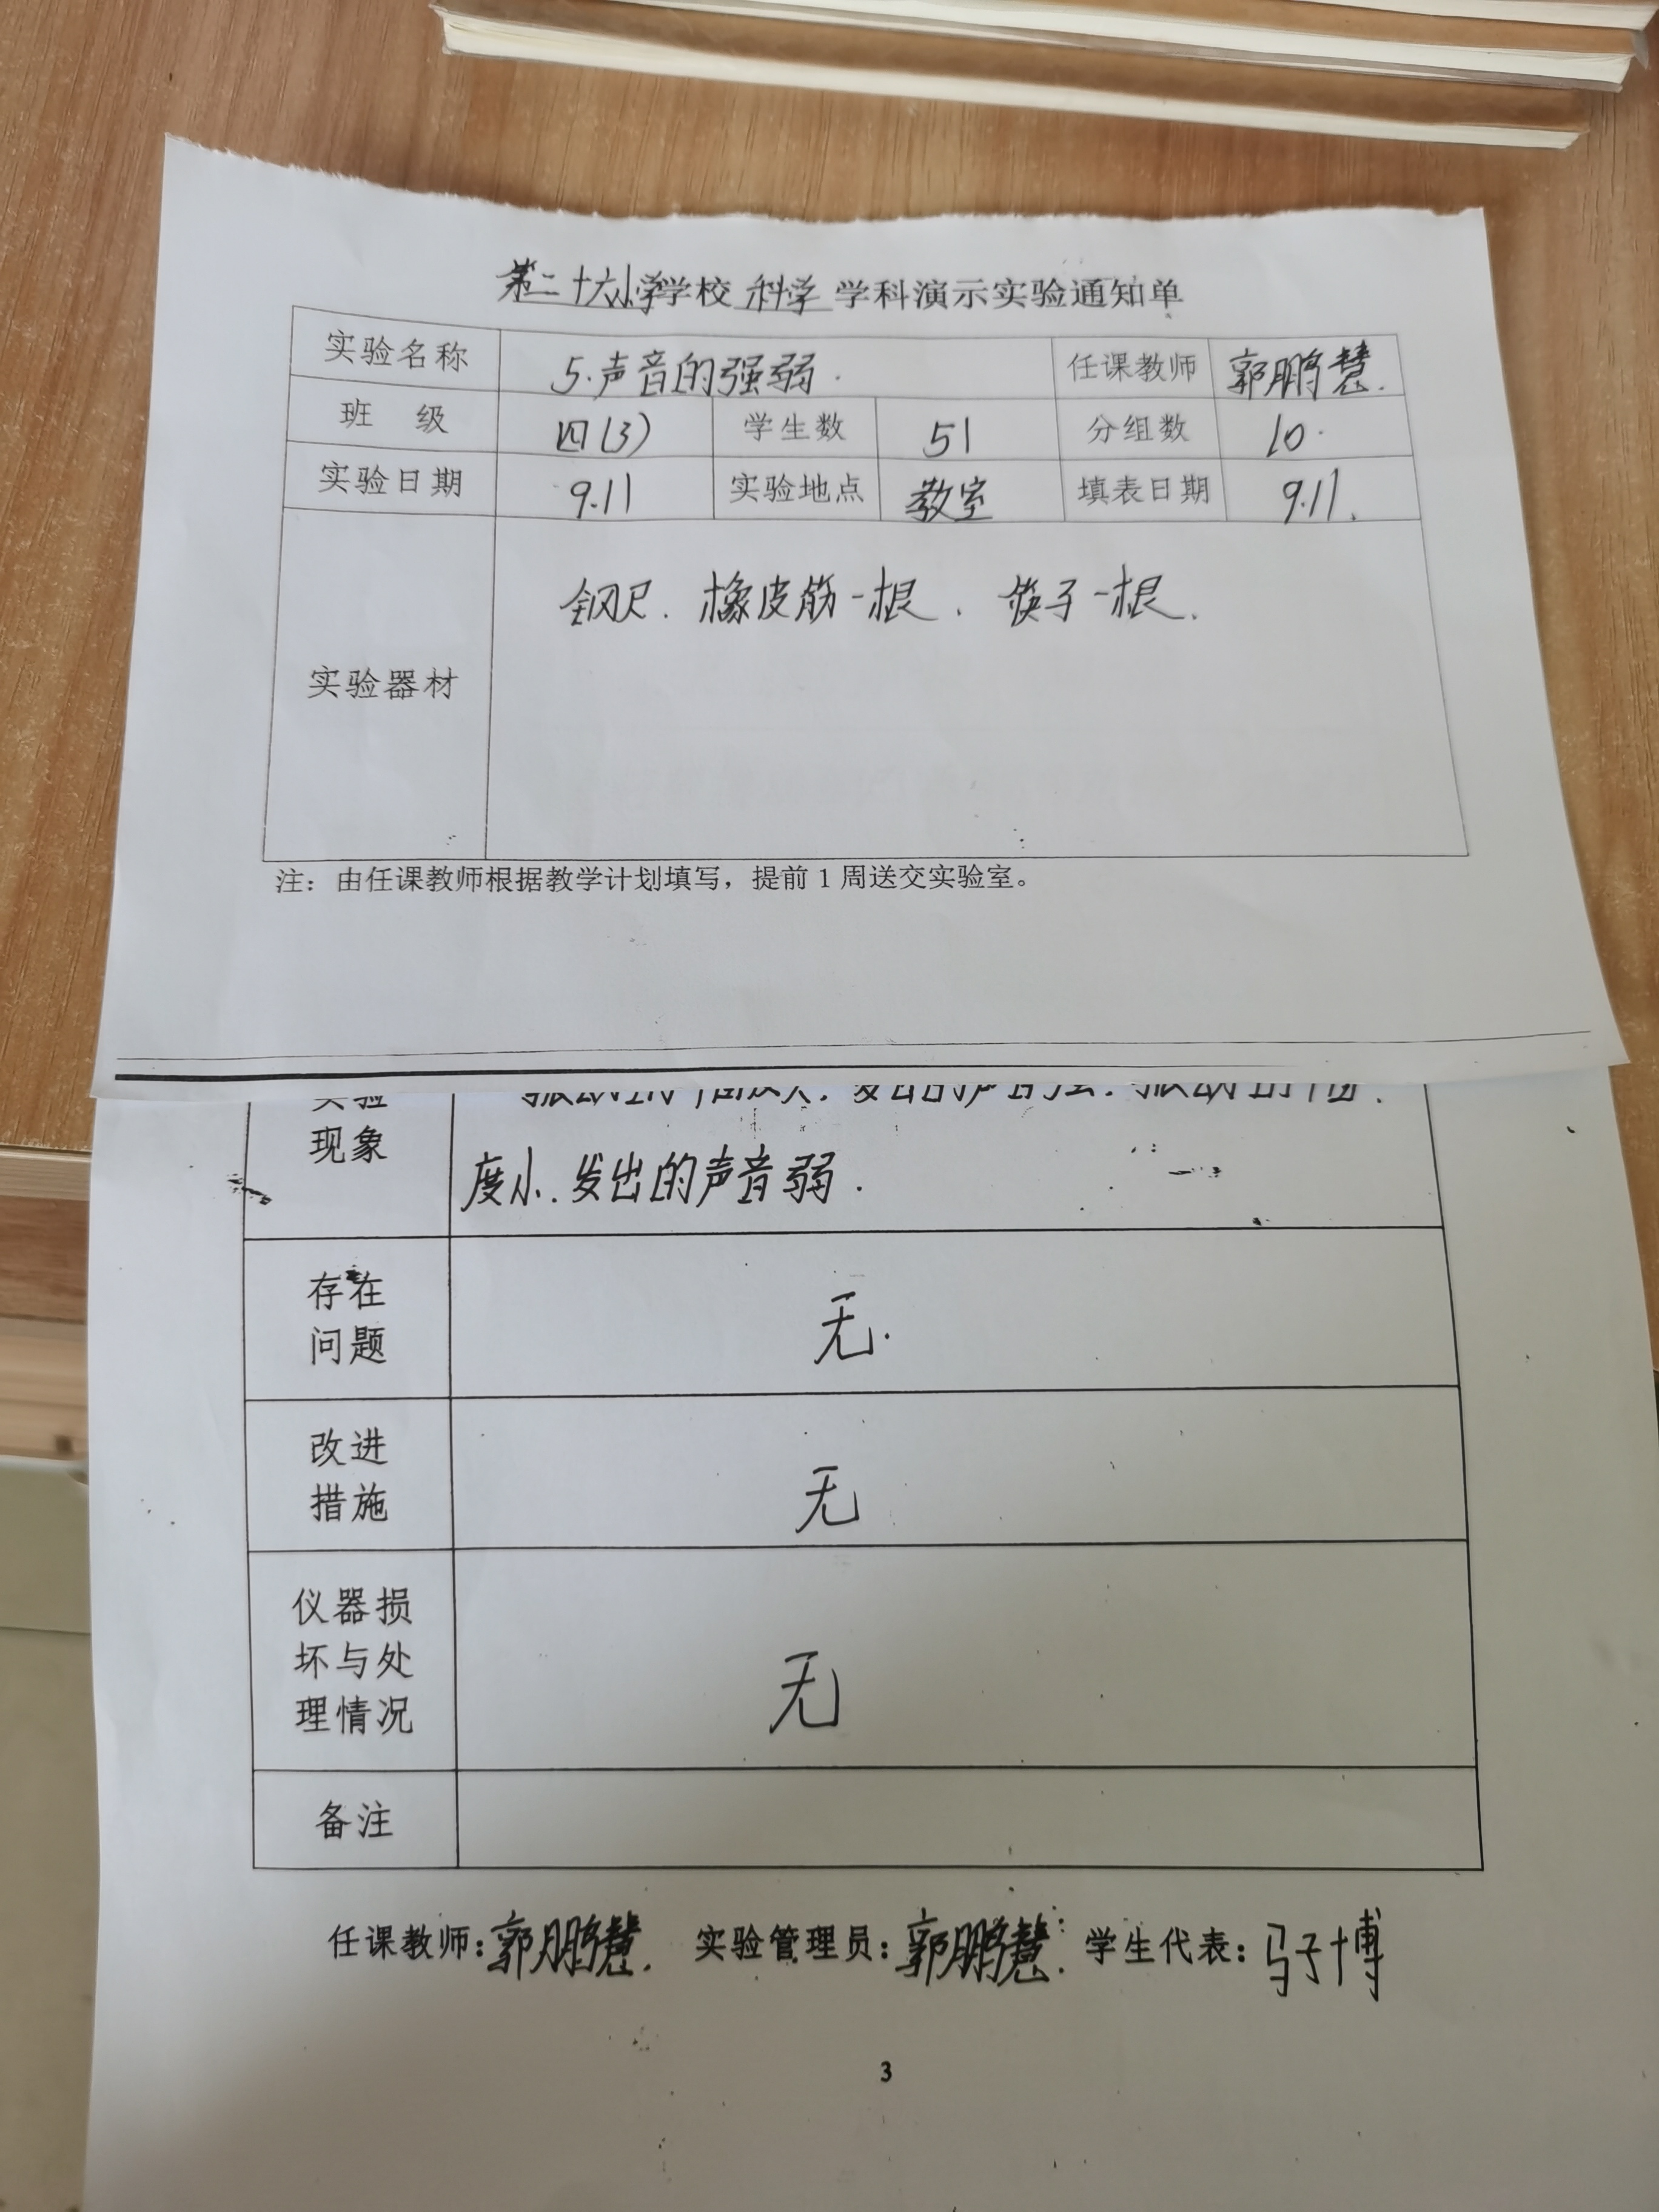 第二十六小学学校 科学 学科演示实验通知单
实验名称 5.声音的强弱. 任课教师 郭鹏慧.
班 级 四(3) 学生数 51 分组数 10.
实验日期 9.11 实验地点 教室 填表日期 9.11.
实验器材 钢尺. 橡皮筋一根. 筷子一根.
注：由任课教师根据教学计划填写，提前1周送交实验室。
实验
现象
度小.发出的声音弱.
存在
问题
无.
改进
措施
无
仪器损
坏与处
理情况
无
备注
任课教师:郭鹏慧. 实验管理员:郭鹏慧. 学生代表:马子博
3